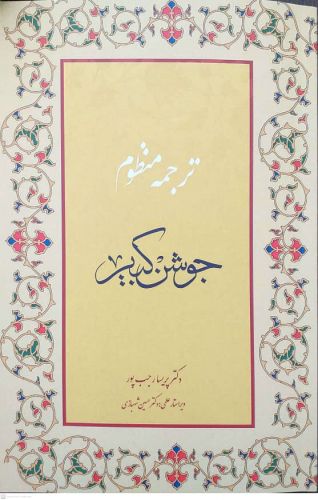 ترجمه منظوم
جوشن کبیر
دکتر پریسا رجب پور
ویراستار علمی: دکتر حسین شهبازی